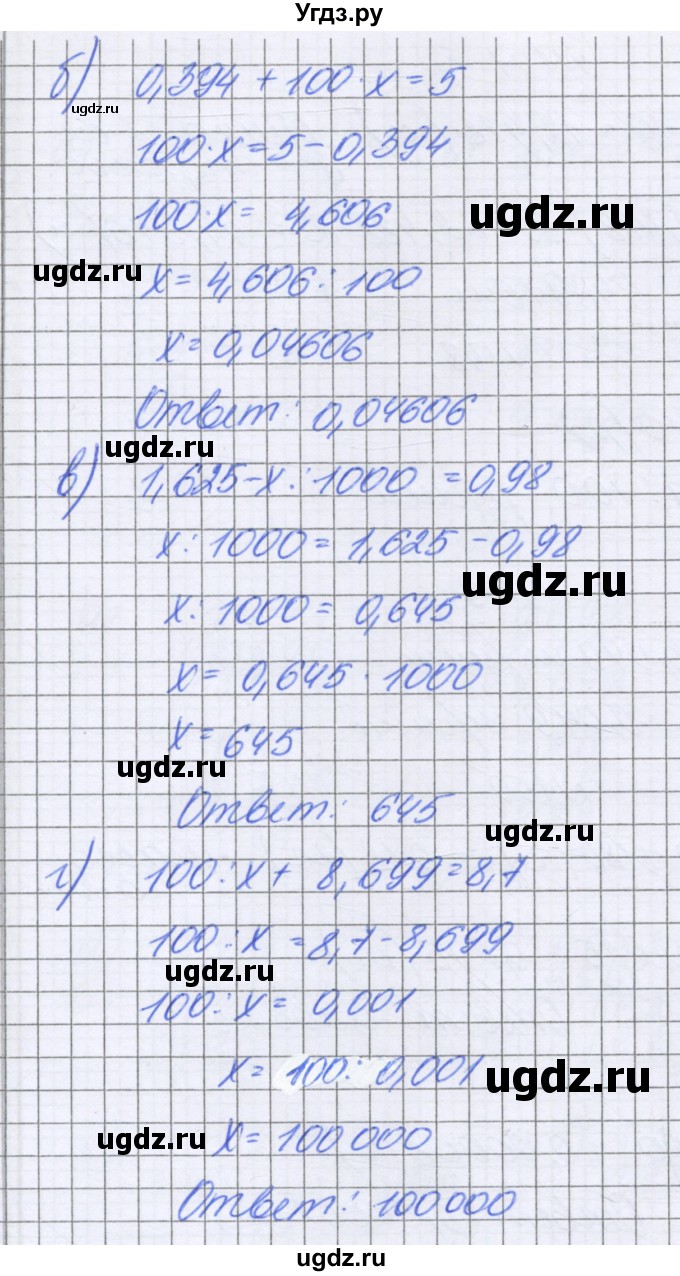 Угдз.ру
б) 0,394 + 100 · x = 5
ugdz.ru
100 · x = 5 - 0,394
100 · x = 4,606
ugdz.ru
ugdz.ru
x = 4,606 : 100
x = 0,04606
Ответ: 0,04606
ugdz.ru
в) 1,625 - x : 1000 = 0,98
x : 1000 = 1,625 - 0,98
ugdz.ru
x : 1000 = 0,645
x = 0,645 · 1000
x = 645
ugdz.ru
Ответ: 645
ugdz.ru
г) 100 : x + 8,699 = 8,7
100 : x = 8,7 - 8,699
ugdz.ru
100 : x = 0,001
x = 100 : 0,001
ugdz.ru
x = 100 000
ugdz.ru
Ответ: 100000
ugdz.ru